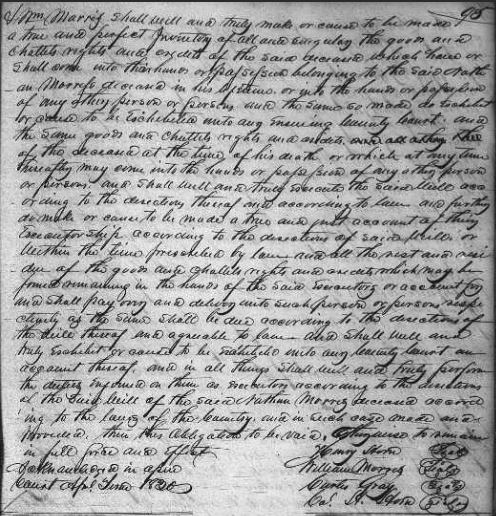 95
& Wm Morris shall well and truly make or cause to be made
a true and perfect Inventory of all and singular the goods and
Chattels rights and credits of the said deceased which have or
shall come into their hands or possession belonging to the said Nath
an Morris deceased in his lifetime or into the hands or possession
of any other person or persons and the same so made do Exhibit
or cause to be Exhibited unto any Ensuing County Court and
the same goods and Chattels rights and credits and all others
of the deceased at the time of his death or which at any time
thereafter may come into the hands or possession of any other person
or persons and shall well and truly Execute the said Will acc
ording to the directions thereof and according to law and further
do make or cause to be made a true and just account of their
Executorship according to the directions of said Will or
Within the time prescribed by law and all the rest and resi
due of the goods and chattels rights and credits which may be
found remaining in the hands of the said Executors or account for
and shall pay over and deliver unto such person or persons respe
ctively as the same shall be due according to the directions of
the Will thereof and agreeable to law and shall well and
truly Exhibit or cause to be exhibited unto any County Court an
account thereof, and in all things shall well and truly perform
the duties Enjoined on them as executors according to the directions
of the said Will of the said Nathan Morris deceased accord
ing to the laws of the Country and in such case made and
Provided, then this Obligation to be void, Otherwise to remain
in full force and Effect
Henry Seal
in open William Morris Seal
Court Apl. Term 1830 Curtis Gray Seal
Seal